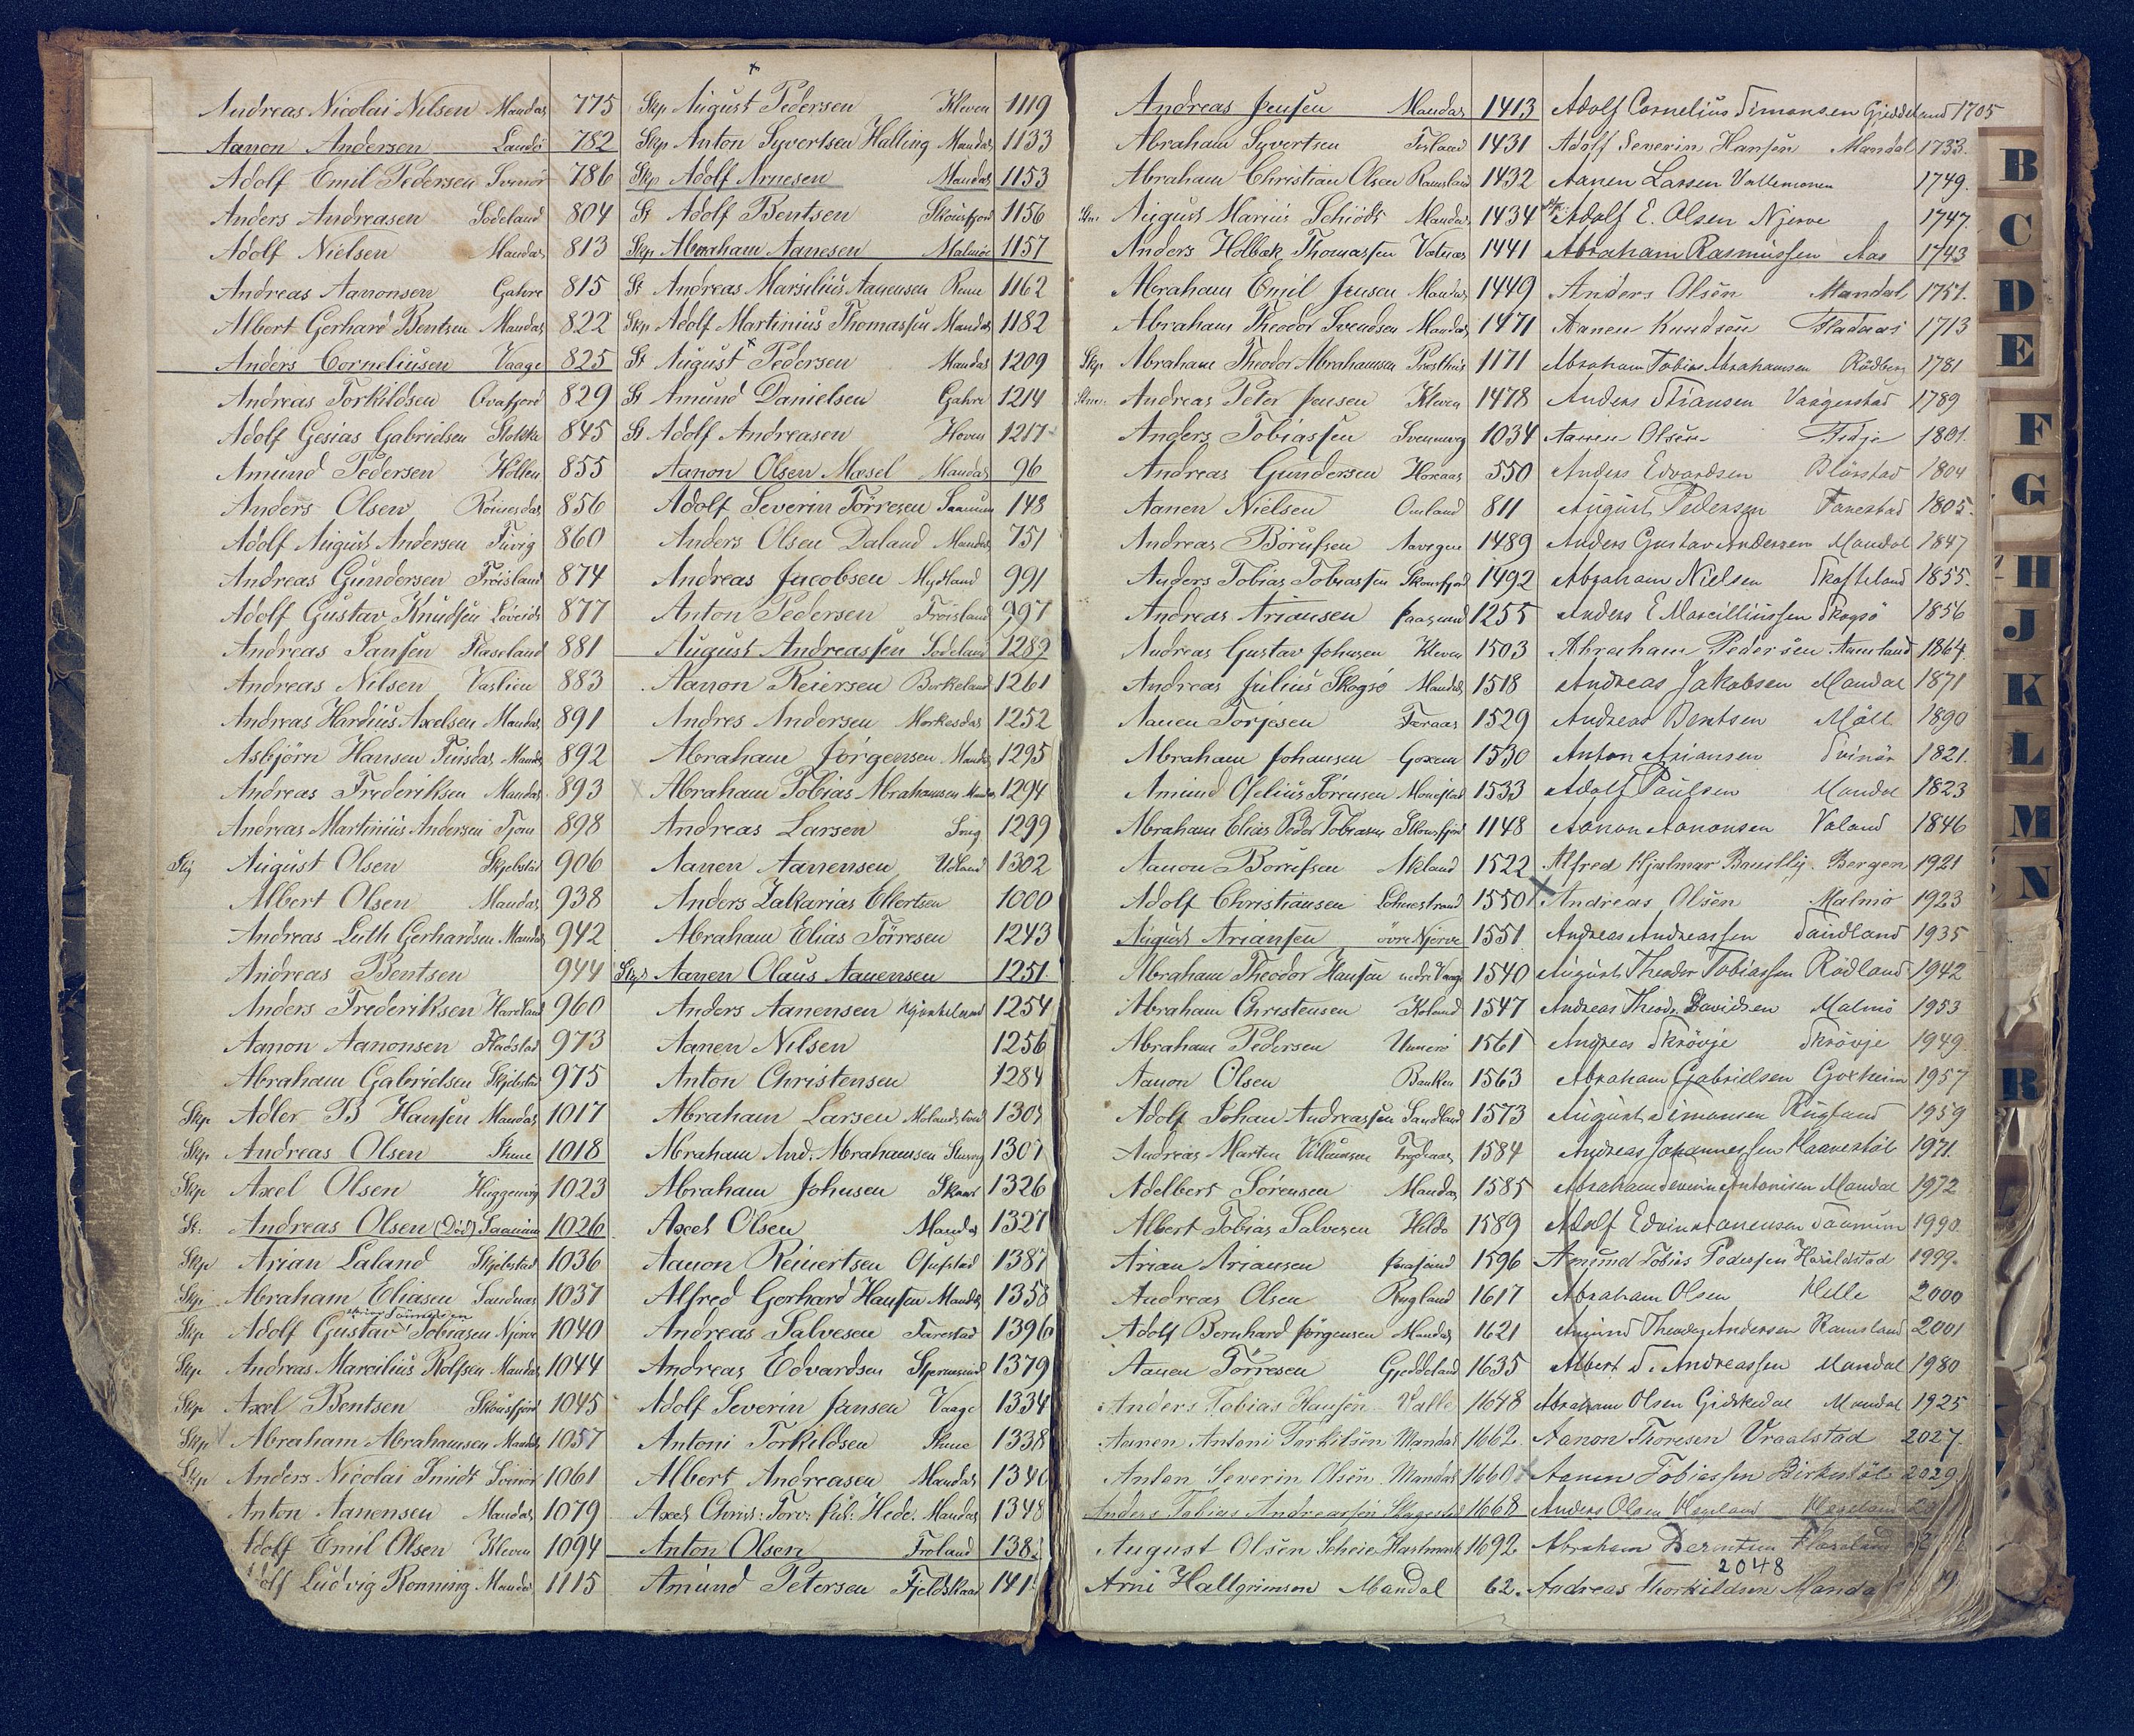 Andreas Nicolai Nilsen Mandal 775
Aanon Andersen Landö 782
Adolf Emil Pedersen Svinör 786
Anders Andreasen Sodeland 804
Adolf Nielsen Mandal 813
Andreas Aanonsen Gahre 815
Albert Gerhard Bentsen Mandal 822
Anders Corneliusen Vaage 825
Andreas Torkildsen Ovafjord 829
Adolf Gesias Gabrielsen 845
Amund Pedersen Hollen 855
Anders Olsen Röinesdal 856
Adolf August Andersen Tuvig 860
Andreas Gundersen Fröisland 874
Adolf Gustav Knudsen 877
Andreas Jansen Haseland 881
Andreas Nilsen Vaslien 883
Andreas Hardius Axelsen Mandal 891
Asbjörn Hansen Mandal 892
Andreas Frederiksen Mandal 893
Andreas Martinius Andersen Tjom 898
August Olsen Skjebstad 906
Albert Olsen Mandal 938
Andreas Luth Gerhardsen Mandal 942
Andreas Bentsen 944
Anders Frederiksen Haveland 960
Aanon Aanonsen Fladstad 973
Abraham Gabrielsen Skjebstad 975
Skp Adler B Hansen Mandal 1017
Skp Andreas Olsen 1018
Skp Axel Olsen Huggenvig 1023
St. Andreas Olsen (Död) Saanum 1026
Skp Arian Laland Skjebstad 1036
Skp Abraham Eliasen Sandnæs 1037
Skp Adolf Gustav Tobiasen Njerve 1040
Skp Andreas Marcilius Rolfsen Mandal 1044
Skp Axel Bentsen Skousfjord 1045
Skp Abraham Abrahamsen Mandal 1057
Skp Anders Nicolai Smidt Svinör 1061
Anton Aanensen Mandal 1079
Adolf Emil Olsen Kleven 1094
Ludvig Rönning Mandal 1115
Skp August Pedersen Kleven 1119
Skp Anton Syvertsen Halling Mandal 1133
Skp Adolf Arnesen Mandal 1153
St Adolf Bentsen Skousfjord 1156
Skp Abraham Aanesen Malmö 1157
St Andreas Marsilius Aanensen 1162
Skp Adolf Martinius Thomassen Mandal 1182
St August Pedersen Mandal 1209
St Amund Danielsen Gahre 1214
St Adolf Andreasen Hoven 1217
Aanon Olsen Mæsel Mandal 96
Adolf Severin Törresen Saanum 148
Anders Olsen Daland Mandal 751
Andreas Jacobsen Mydland 991
Anton Pedersen Fröisland 997
August Andreassen Sodeland 1289
Aanon Reiersen Birkeland 1261
Andres Andersen 1252
Abraham Jörgensen Mandal 1295
Abraham Tobias Abrahamsen Mandal 1294
Andreas Larsen 1299
Aanen Aanensen Udland 1302
Anders Zakarias Ellertsen 1000
Abraham Elias Törresen 1243
Skp Aanen Olaus Aanensen 1251
Anders Aanensen 1254
Aanen Nilsen 1256
Anton Christensen 1284
Abraham Larsen
Abraham And. Abrahamsen 1307
Abraham Johnsen 1326
Axel Olsen Mandal 1327
Aanon Reinertsen Ofustad 1387
Alfred Gerhard Hansen Mandal 1358
Andreas Salvesen Tarestad 1396
Andreas Edvardsen 1379
Adolf Severin Jansen Vaage 1334
Antoni Torkildsen 1338
Albert Andreasen Mandal 1340
Mandal 1348
Anton Olsen Froland
Amund Petersen Fjeldskaar
Andreas Jensen Mandal 1413
Abraham Syvertsen Tisland 1431
Abraham Christian Olsen Ramsland 1432
August Marius Schiödt Mandal 1434
Anders Holbæk Thomassen Vatnæs 1441
Abraham Emil Jensen Mandal 1449
Abraham Theodor Svendsen Mandal 1471
Skp Abraham Theodor Abrahamsen 1171
Andreas Peter Jensen Kleven 1478
Anders Tobiassen Svennevig 1034
Andreas Gundersen 550
Aanen Nielsen Omland 811
Andreas Börufsen 1489
Anders Tobias Tobiassen Skousfjord 1492
Andreas Ariansen 1255
Andreas Gustav Johnsen Kleven 1503
Andreas Julius Skogsö Mandal 1518
Aanen Torjesen Foraas 1529
Abraham Johansen 1530
Amund Ofelius Sörensen 1533
Abraham Elias Peder Tobiasen Skousfjord 1148
Aanon Börufsen Akland 1522
Adolf Christiansen Lohnestrand 1550
August Ariansen övre Njerve 1551
Abraham Theodor Hansen nedre Vaage 1540
Abraham Christensen Holand 1547
Abraham Pedersen 1561
Aanon Olsen Banken 1563
Adolf Johan Andreassen Sandland 1573
Andreas Martin Villumsen 1584
Adelbert Sörensen Mandal 1585
Albert Tobias Salvesen 1589
Arian Ariansen 1596
Andreas Olsen Rugland 1617
Adolf Bernhard Jörgensen Mandal 1621
Aanen Törresen Gjeddeland 1635
Anders Tobias Hansen Valle 1648
Aanen Antoni Torkilsen Mandal 1662
Anton Severin Olsen Mandal 1660
Anders Tobias Andreassen 1668
August Olsen Scheie Hartmark 1692
Arni Hallgrimson Mandal 62.
Adolf Cornelius Simonsen Gjeddeland 1705
Adolf Severin Hansen Mandal 1733.
Aanen Larsen Vallemonen 1749.
Adolf E. Olsen Njerve 1747.
Abraham Rasmussen Aas 1743
Anders Olsen Mandal 1751.
Aanen Knudsen 1713
Abraham Tobias Abrahamsen Rödberg 1781
Anders Stiansen Vaagenstad 1789
Aanen Olsen Tedje 1801.
Anders Edvardsen 1804
August Pedersen Tanestad 1805.
Anders Gustav Andersen Mandal 1847
Abraham Nielsen Skofteland 1855.
Anders E Marcilliussen Skogsö 1856
Abraham Pedersen 1864.
Andreas Jakobsen Mandal 1871
Andreas Bentsen Möll 1890
Anton Ariansen Svinör 1821.
Adolf Paulsen Mandal 1823
Aanon Aanonsen Valand 1846
Alfred Hjalmar Bergen 1921
Andreas Olsen Malmö 1923
Andreas Andreassen Sandland 1935
August Theodor Tobiassen Rödland 1942
Andreas Theodr. Davidsen Malmö 1953
Andreas Skrövje Skrövje 1949
Abraham Gabrielsen Goxheim 1957
August Simonsen Rugland 1959
Andreas Johannessen Haanestöl 1971.
Abraham Severin Antonisen Mandal 1972
Adolf Edvin Aanensen Saanum 1990.
Amund Tobias Pedersen Haraldstad 1999.
Abraham Olsen Helle 2000
Amund Theodor Andersen Ramsland 2001
Albert S. Andreassen Mandal 1980
Abraham Olsen Gidskedal Mandal 1925
Aanon Thoresen Vraalstad 2027.
Aanen Tobiassen Birkestöl 2029
Anders Olsen Hageland Hageland
Abraham Berntsen
2048
Andreas Thorkildsen Mandal
B
C
D
E
F
G
H
J
K
L
M
N
R